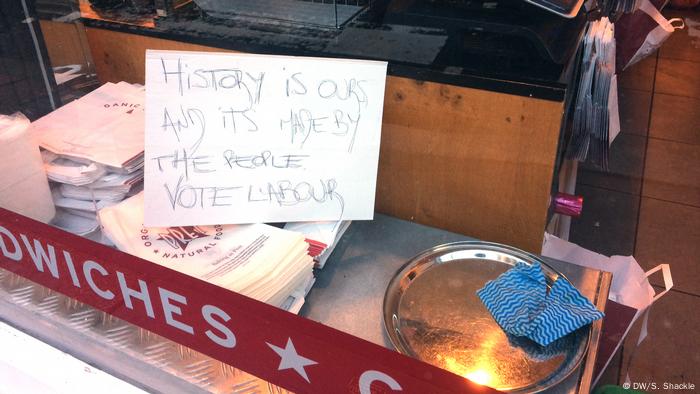 HISTORY IS OURS
AND ITS MADE BY
THE PEOPLE.
VOTE LABOUR
ORG
NATURAL FOO
DWICHES ★
© DW/S. Shackle